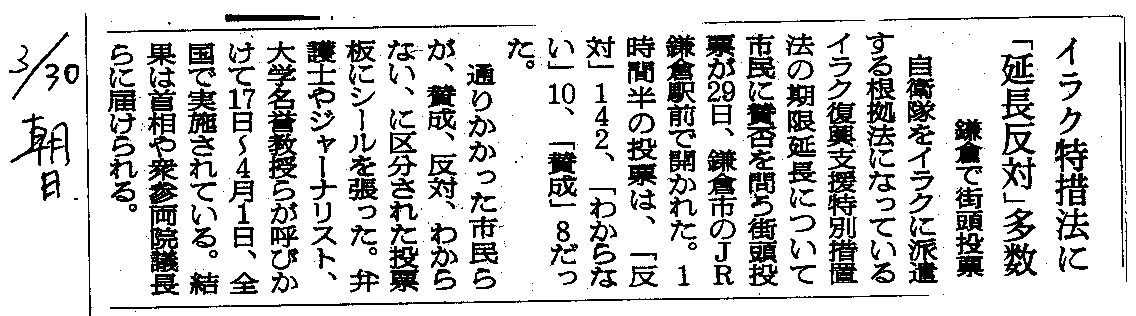 イラク特措法に
「延長反対」多数
鎌倉で街頭投票
自衛隊をイラクに派遣
する根拠法になっている
イラク復興支援特別措置
法の期限延長について
市民に賛否を問う街頭投
票が29日、鎌倉市のJR
鎌倉駅前で開かれた。1
時間半の投票は、「反
対」142、「わからな
い」10、「賛成」8だっ
た。
通りかかった市民ら
が、賛成、反対、わから
ない、に区分された投票
板にシールを張った。弁
護士やジャーナリスト、
大学名誉教授らが呼びか
けて17日〜4月1日、全
国で実施されている。結
果は首相や衆参両院議長
らに届けられる。
3/30
朝日.